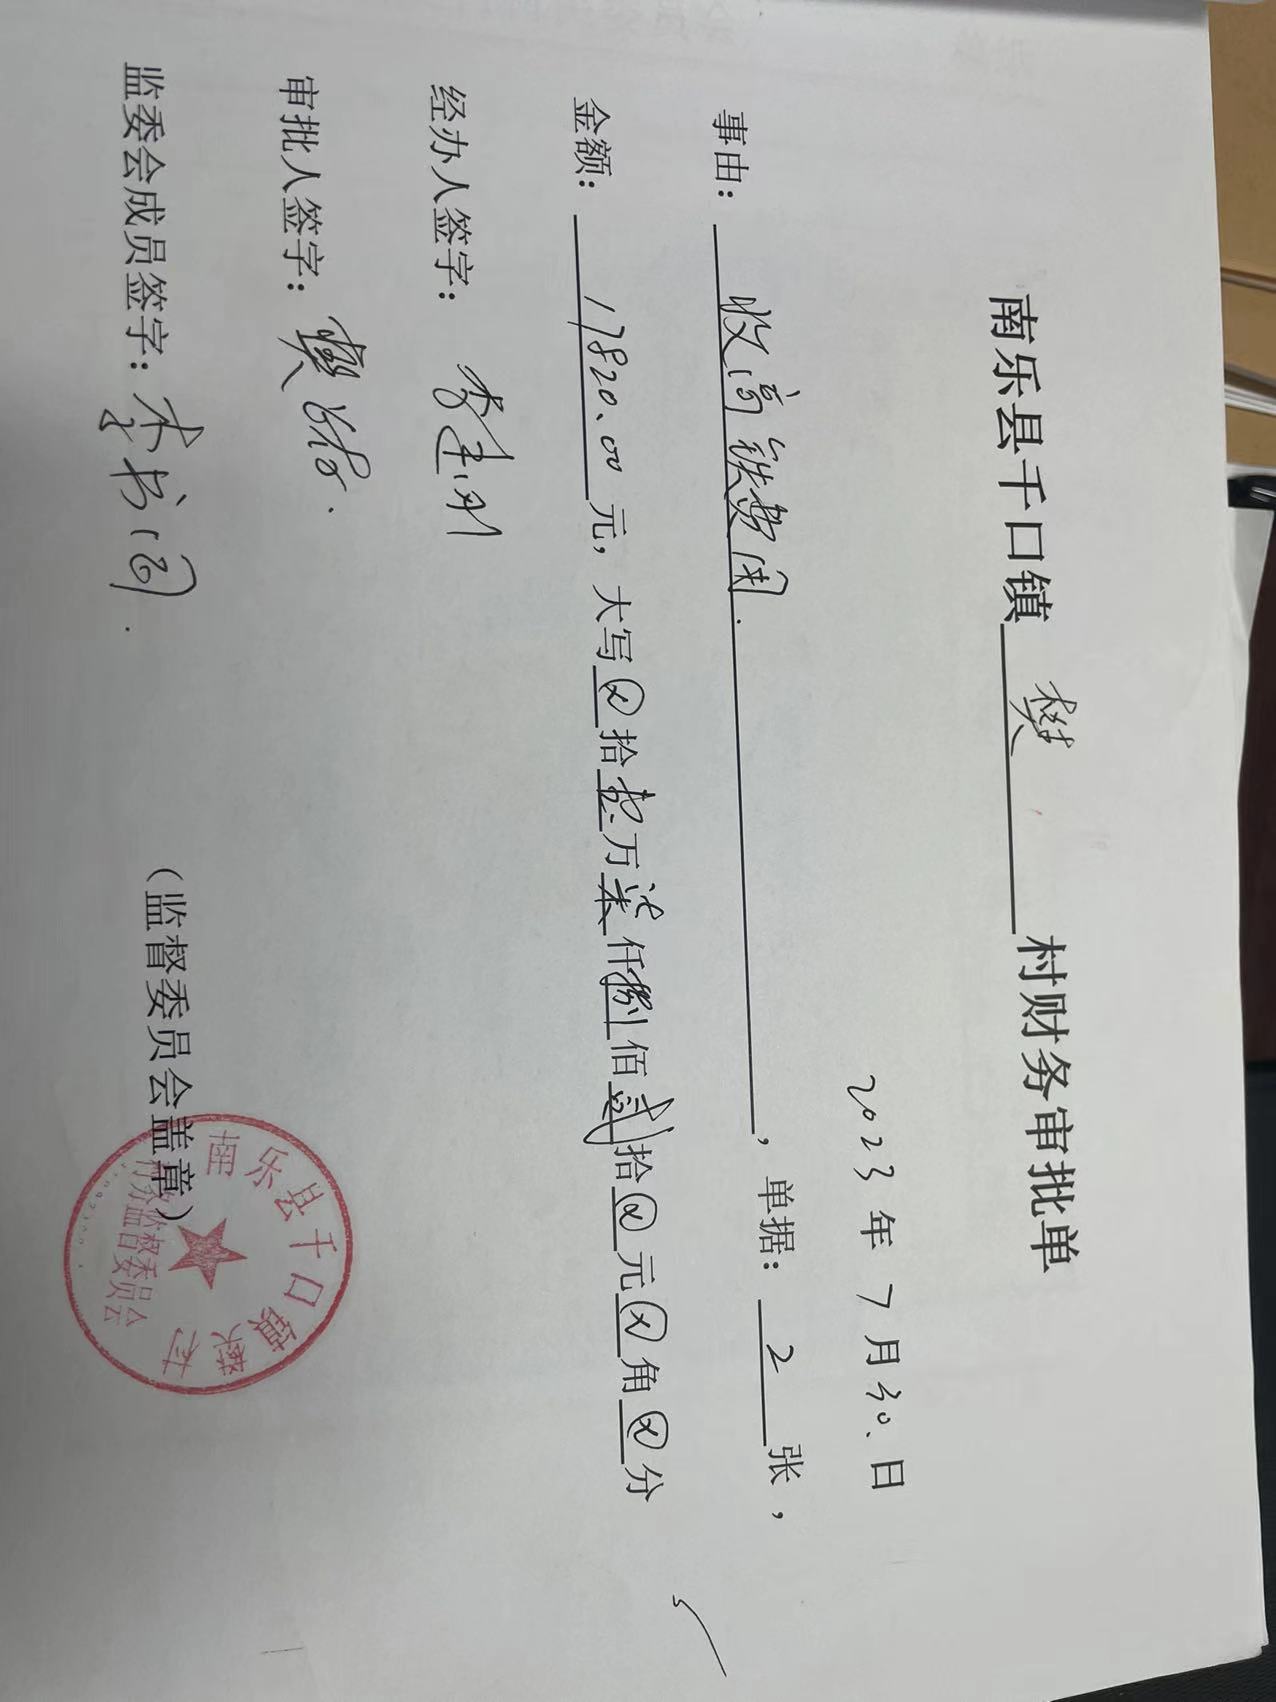 南乐县千口镇 樊 村财务审批单
2023年7月30、日
事由：收高铁费用.，单据：2张，
金额：17820.00元，大写⊗拾壹万柒仟捌佰贰拾⊗元⊗角⊗分
经办人签字：李
审批人签字：樊
监委会成员签字：李书
（监督委员会盖章）
南乐县千口镇樊村
村务监督委员会